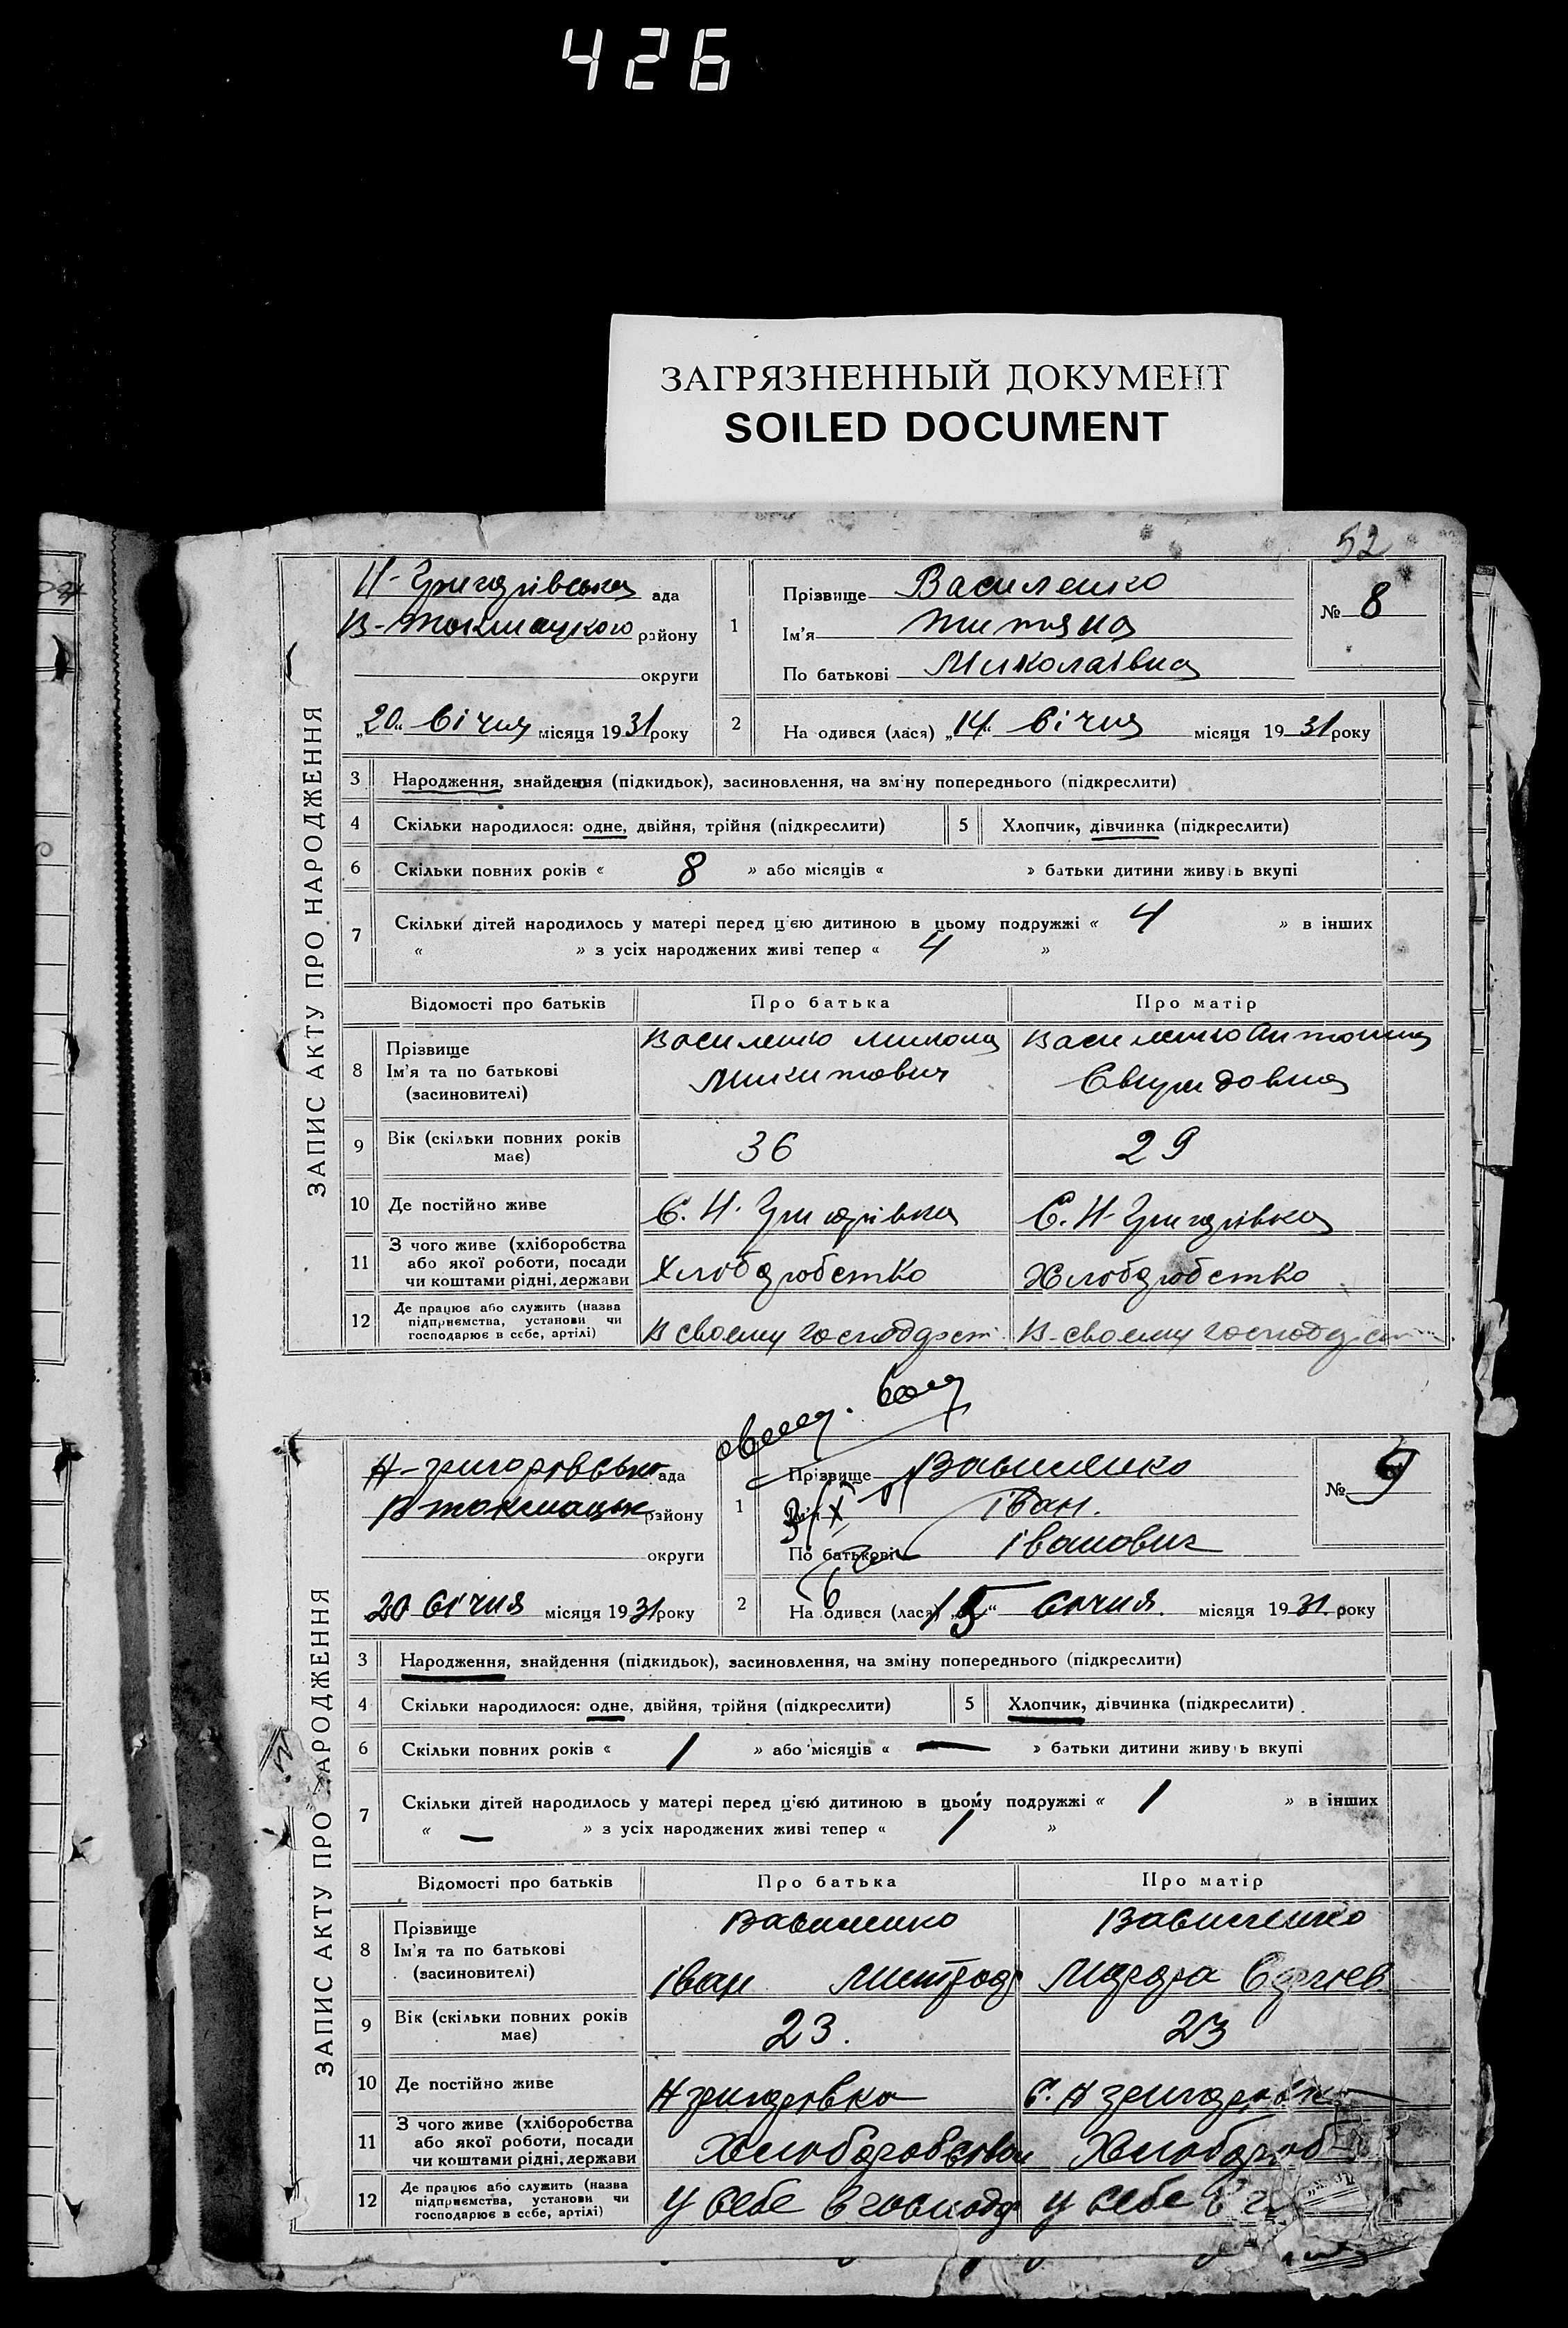 426
ЗАГРЯЗНЕННЫЙ ДОКУМЕНТ
SOILED DOCUMENT
52
ЗАПИС АКТУ ПРО НАРОДЖЕННЯ
Н-Григорівська ада
В-Токмацького району
округи
„20“ Січня місяця 1931 року
1
Прізвище Василенко
Ім'я Титяна
По батькові Миколаівна
№ 8
2 На одився (лася) „14“ Січня місяця 1931 року
3 Народження, знайдення (підкидьок), засиновлення, на зміну попереднього (підкреслити)
4 Скільки народилося: одне, двійня, трійня (підкреслити) 5 Хлопчик, дівчинка (підкреслити)
6 Скільки повних років « 8 » або місяців « » батьки дитини живуть вкупі
7 Скільки дітей народилось у матері перед ц'єю дитиною в цьому подружжі « 4 » в інших
« » з усіх народжених живі тепер « 4 »
Відомості про батьків Про батька Про матір
8 Прізвище Ім'я та по батькові (засиновителі)
Василенко Микола
Микитович
Василенко Антонина
9 Вік (скільки повних років має) 36 29
10 Де постійно живе С. Н. Григорівка С. Н-Григорівка
11 З чого живе (хліборобства або якої роботи, посади чи коштами рідні, держави
12 Де працює або служить (назва підприємства, установи чи господарює в себе, артілі)
В своєму В-своєму
ЗАПИС АКТУ ПРО НАРОДЖЕННЯ
Н-Григоровсько ада
В токмацьк району
округи
20 Січня місяця 1931 року
1
Прізвище Василенко
Ім'я Іван.
По батькові Іванович
№ 9
2 На одився (лася) „15“ Січня. місяця 1931. року
3 Народження, знайдення (підкидьок), засиновлення, на зміну попереднього (підкреслити)
4 Скільки народилося: одне, двійня, трійня (підкреслити) 5 Хлопчик, дівчинка (підкреслити)
6 Скільки повних років « 1 » або місяців « — » батьки дитини живуть вкупі
7 Скільки дітей народилось у матері перед ц'єю дитиною в цьому подружжі « 1 » в інших
« — » з усіх народжених живі тепер « 1 »
Відомості про батьків Про батька Про матір
8 Прізвище Ім'я та по батькові (засиновителі)
Василенко
Іван
Василенко
9 Вік (скільки повних років має) 23. 23
10 Де постійно живе Н григоровка С. Н григоровка
11 З чого живе (хліборобства або якої роботи, посади чи коштами рідні, держави
12 Де працює або служить (назва підприємства, установи чи господарює в себе, артілі)
У себе в господ у себе в г